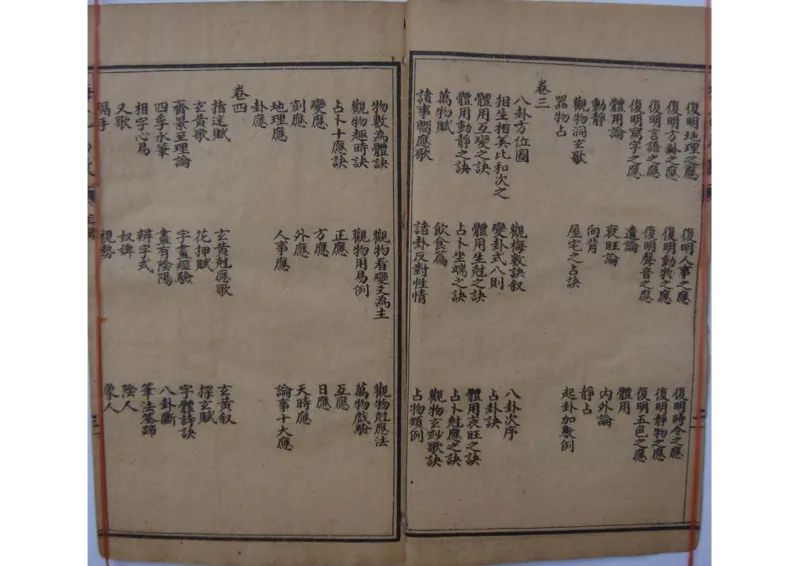 復明地理之應 復明人事之應 復明時令之應
復明方卦之應 復明動物之應 復明靜物之應
復明言語之應 復明聲音之應 復明五色之應
復明寫字之應 遺論 體用
體用論 衰旺論 內外論
動靜 向背 靜占
觀物洞玄歌 屋宅之占訣 起卦加數例
器物占
卷三
八卦方位圖 觀梅數訣叙 八卦次序
相生相尅比和次之 變卦式八則 占卦訣
體用互變之訣 體用生尅之訣 體用衰旺之訣
體用動靜之訣 占卜坐端之訣 占卜尅應之訣
萬物賦 飲食篇 觀物玄妙歌訣
諸事嚮應歌 諸卦反對性情 占物類例
物數為體訣 觀物看變爻為主 觀物尅應法
觀物趣時訣 觀物用易例 萬物戲驗
占卜十應訣 正應 互應
變應 方應 日應
刻應 外應 天時應
地理應 人事應 論事十大應
卦應
卷四
指迷賦 玄黄尅應歌 玄黄叙
玄貴歌 花押賦 探玄賦
齊景至理論 字畫經驗 字體詩訣
四季水筆 畫有陰陽 八卦斷
相字心易 辨字式 筆法筌蹄
又歌 奴婢 陰人
隔手 視勢 象人